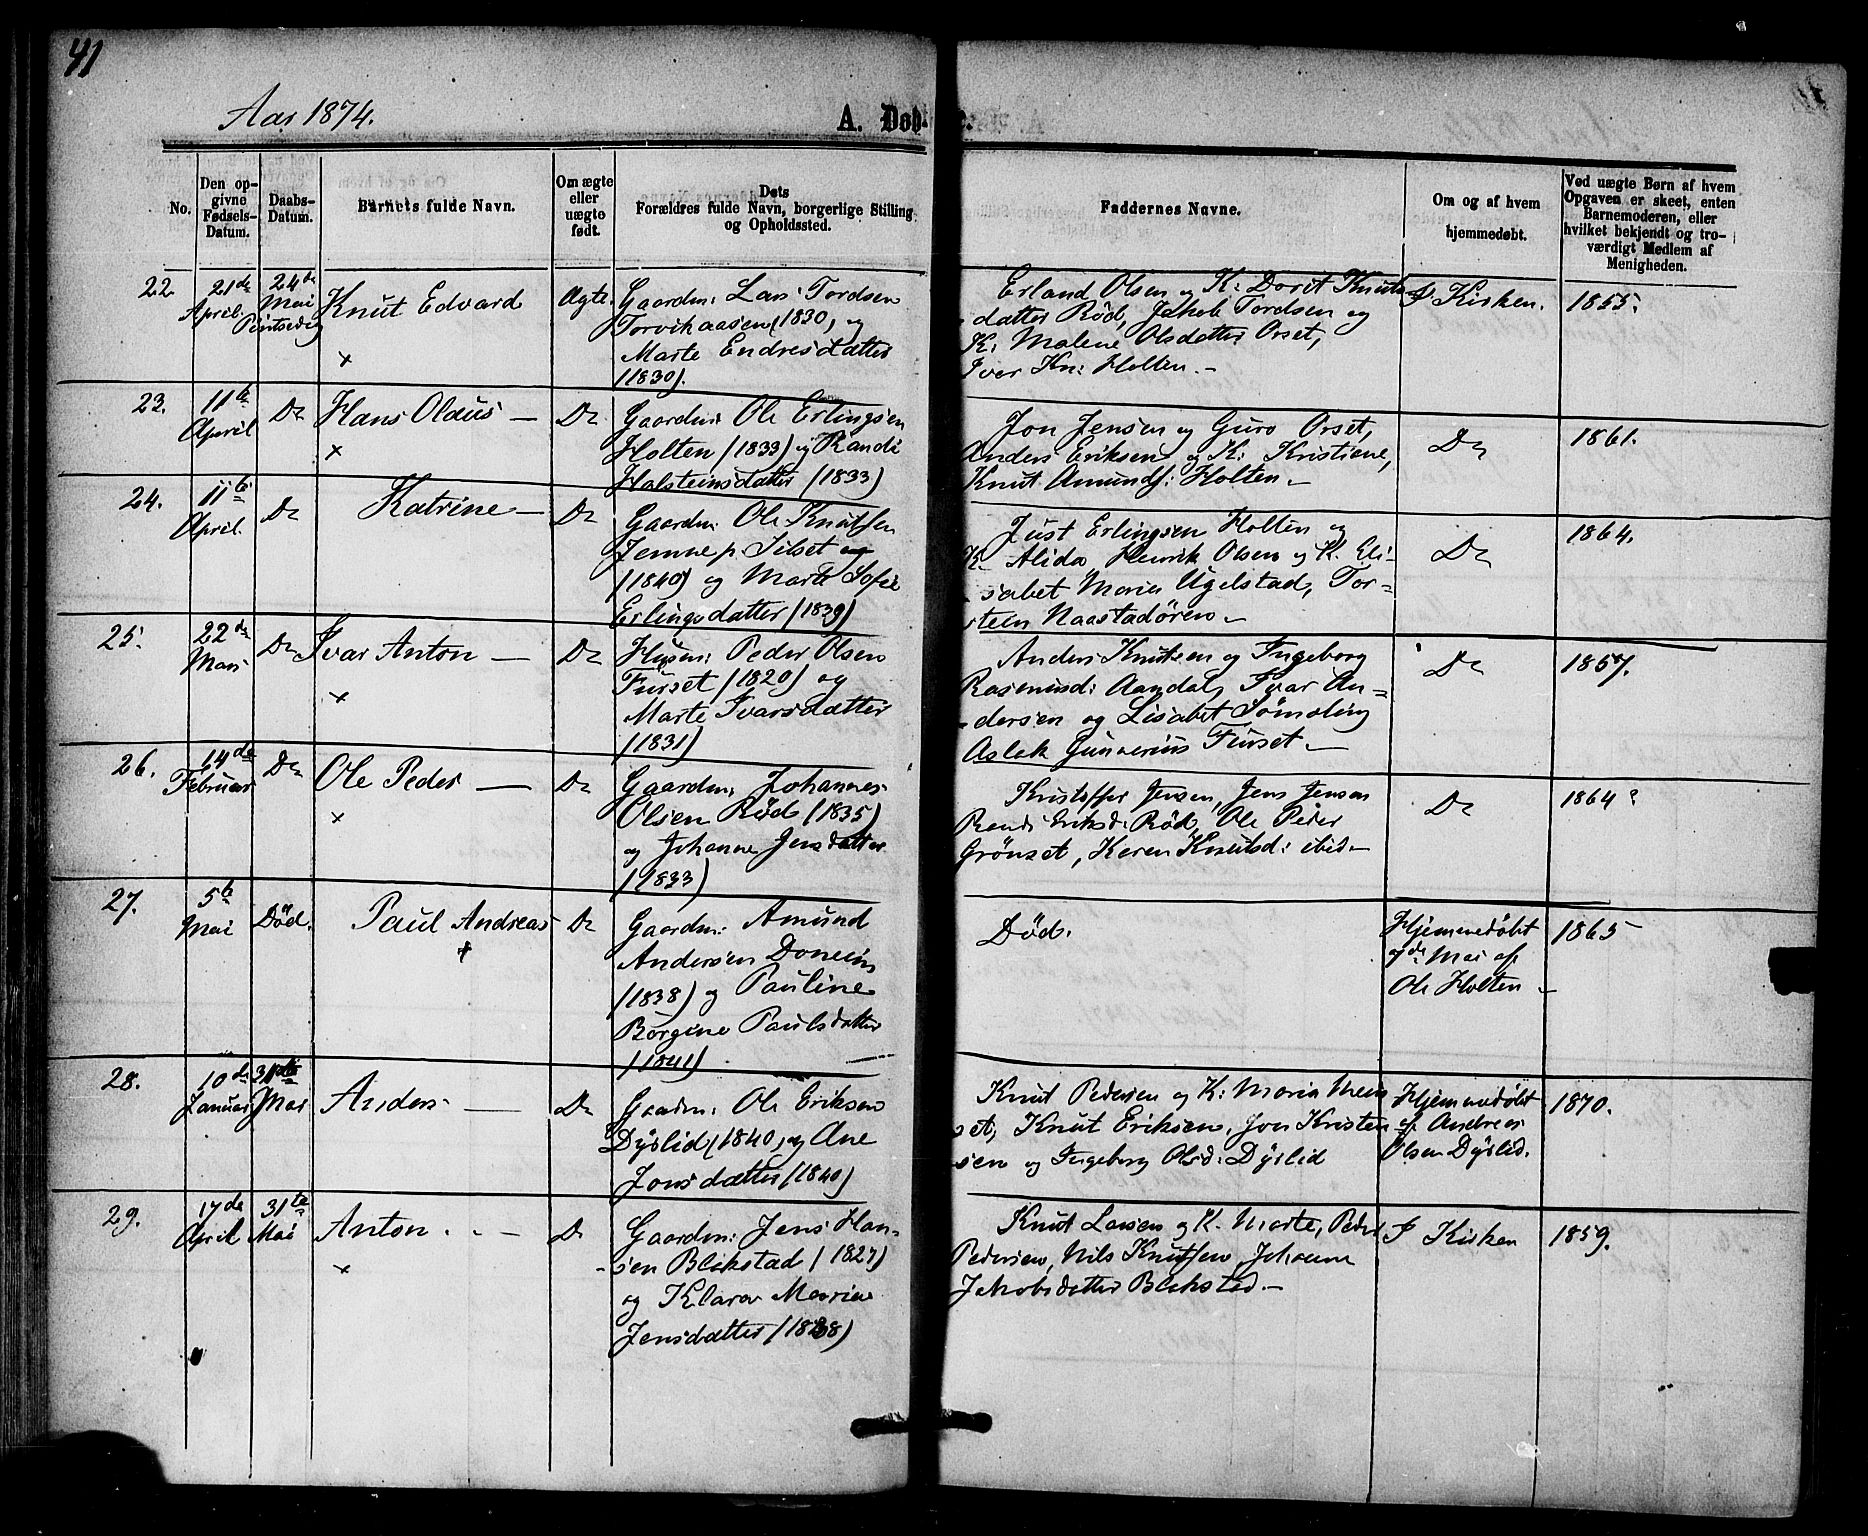 41
Aar 1874.
A. Døb
No.
Den op-
givne
Fødsels-
Datum.
Daabs-
Datum.
Barnets fulde Navn.
Om ægte
eller
uægte
født.
Dets
Forældres fulde Navn, borgerlige Stilling
og Opholdssted.
Faddernes Navne.
Om og af hvem
hjemmedøbt.
Ved uægte Børn af hvem
Opgaven er skeet, enten
Barnemoderen, eller
hvilket bekjendt og tro-
værdigt Medlem af
Menigheden.
22
21de
April.
24de
Mai
Knut Edvard
+
Ægte.
Gaardm: Lars Tordsen
Torvikaasen (1830, og
Marte Endresdatter
(1830).
Erland Olsen og K: Dorit Knuts
datter Röd, Jakob Tordsen og
K: Malene Olsdatter Orset,
Iver Kn: Holten.-
I Kirken.
1855.
23.
11te
April
Do
Hans Olaus -
+
Do
Gaardm: Ole Erlingsen
Holten (1833) og Randi
Halsteinsdatter (1833)
Jon Jensen og Guro Orset,
Anders Eriksen og K: Kristiene,
Knut Amunds: Holten.
Do
1861.
24.
11te
April.
Do
Katrine -
Do
Gaardm: Ole Knutsen
Jemne p. Silset og
(1840) og Marte Sofie
Erlingsdatter (1839)
Just Erlingsen Holten og
K. Alida, Henrik Olsen og K. Eli-
sabet Maria Ugelstad, Tor-
stein Naastadören -
Do
1864.
25.
22de
Mars
Do
Ivar Anton -
+
Do
Husm: Peder Olsen
Furset (1820) og
Marte Ivarsdatter
(1831)
Anders Knutsen og Ingeborg
Rasmusd: Aandal, Ivar An-
dersen og Lisabet Sömöling
Aslak Gunnerius Furset -
Do
1857.
26.
14de
Februar
Do
Ole Peder -
+
Do
Gaardm: Johannes
Olsen Röd (1835)
og Johanne Jensdatter
(1833)
Kristoffer Jensen, Jens Jensen
Randi Eriksd: Röd, Ole Peder
Grönset, Karen Knutsd: ibid -
Do
1864?
27.
5te
Mai
Död.
Paul Andreas
+
Do
Gaardm: Amund
Andersen Donnem
(1838) og Pauline
Bergine Paulsdatter
(1841)
Död.
Hjemmedöbt
7de Mai af
Ole Holten -
1865
28.
10de
Januar
31te
Mai
Anders -
Do
Gaardm: Ole Eriksen
Dyslid (1840, og Ane
Jonsdatter (1840)
Knut Pedersen og K: Maria Mem
set, Knut Eriksen, Jon Kristen
sen og Ingeborg Olsd: Dyslid
Hjemmedöbt
af Andreas
Olsen Dyslid.
1870.
29.
17de
April
31te
Mai
Anton. - -
+
Do
Gaardm: Jens Han-
sen Blikstad (1827)
og Klara Marie
Jensdatter (1838)
Knut Larsen og K. Marte, Peder
Pedersen, Nils Knutsen, Johanne
Jakobsdatter Blikstad. -
I Kirken
1859.